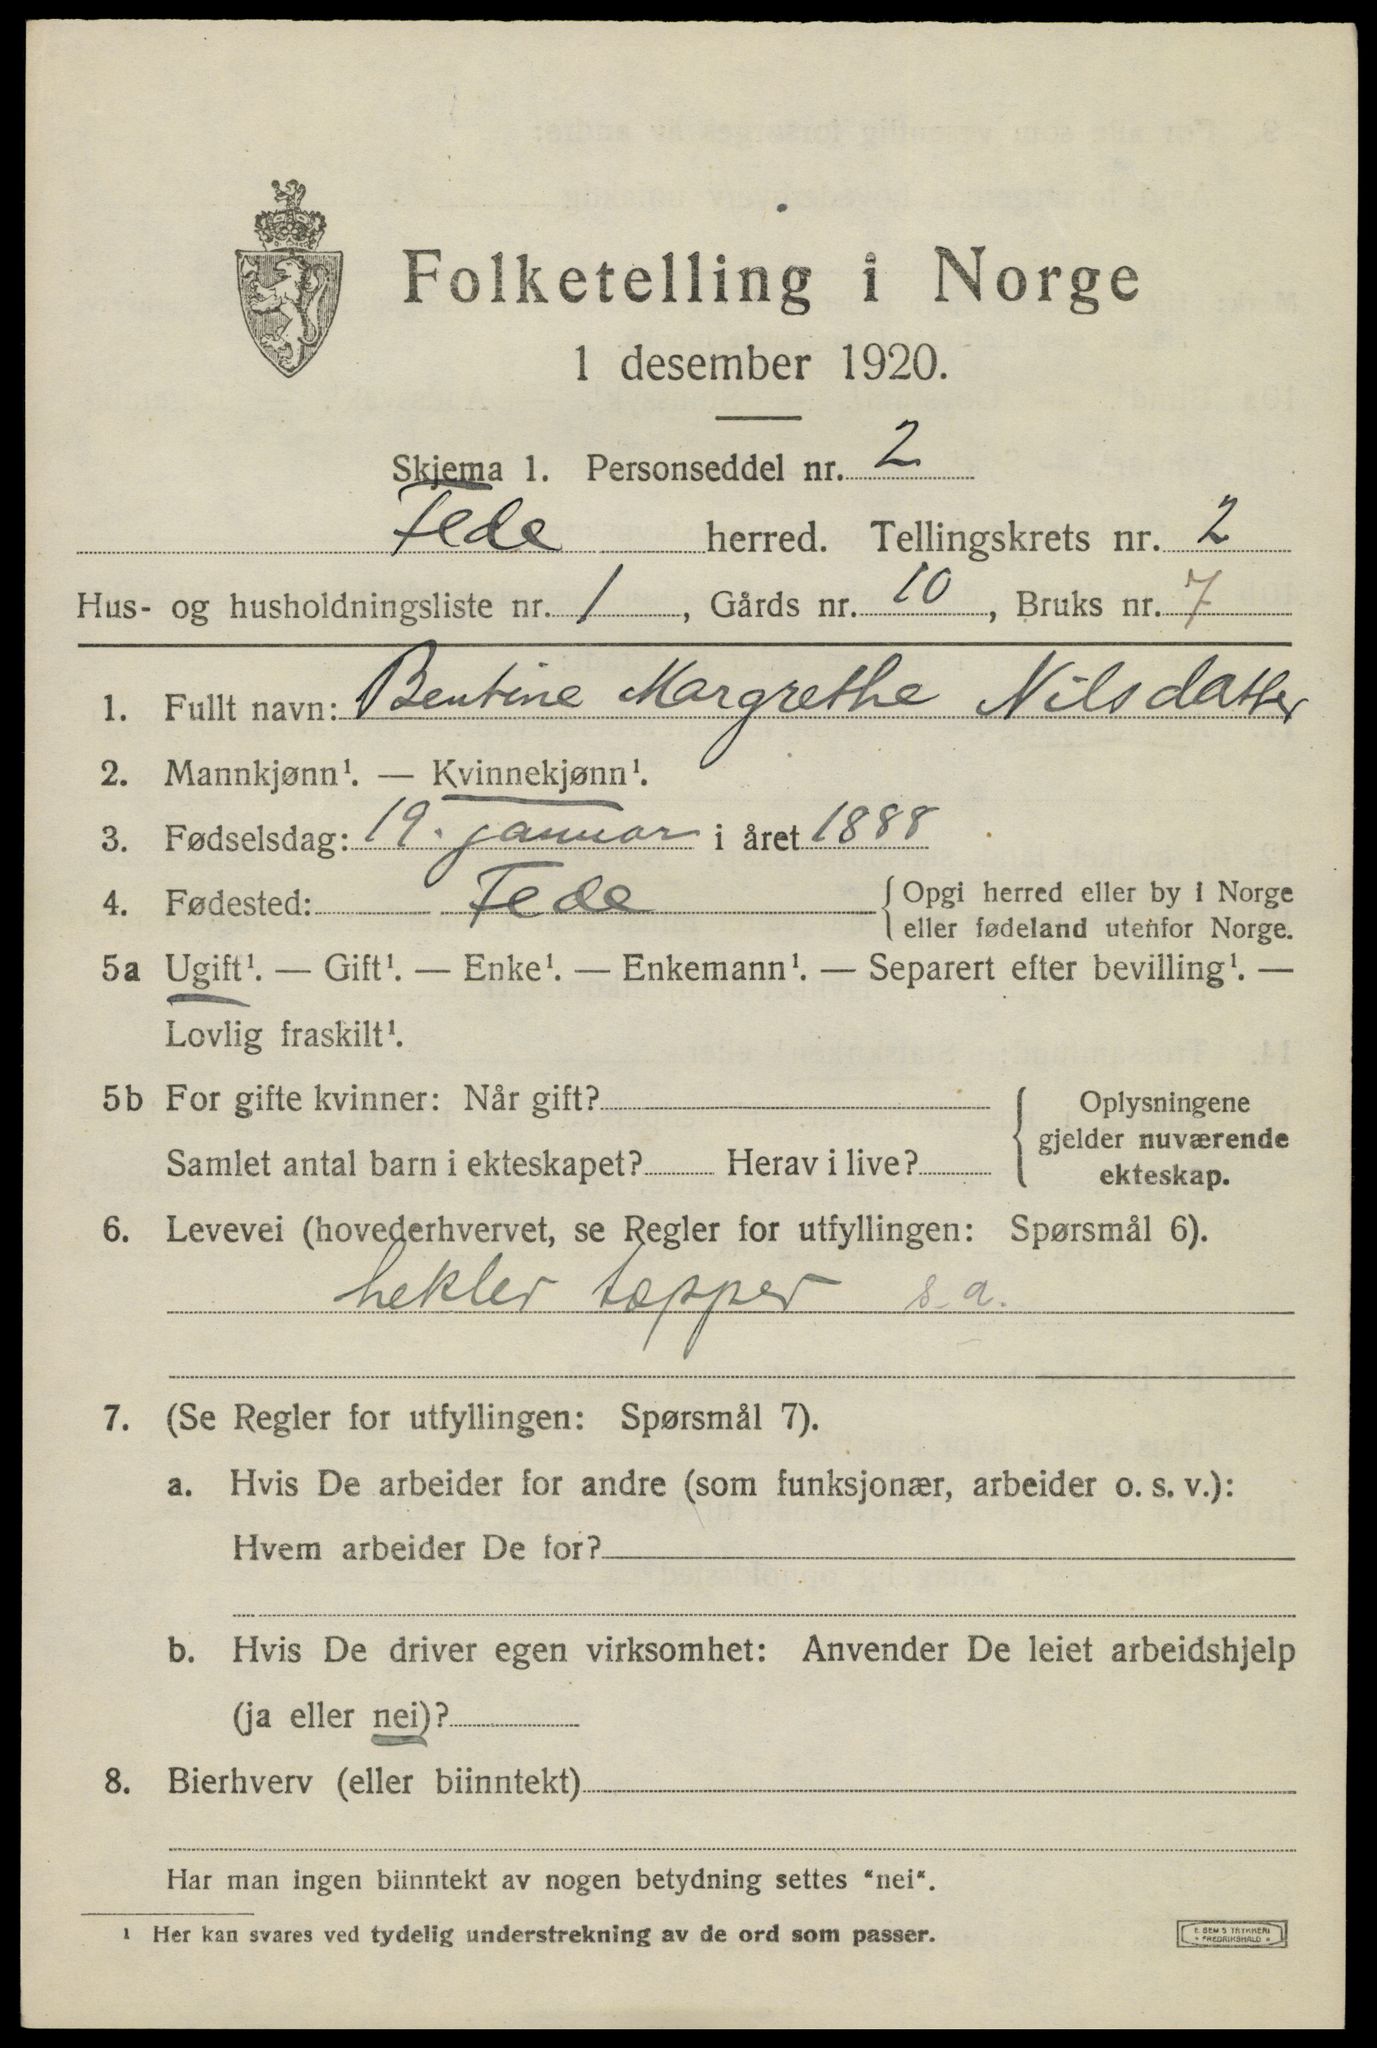 Folketelling i Norge
1 desember 1920.
Skjema 1. Personseddel nr. 2
Fede herred. Tellingskrets nr. 2
Hus- og husholdningsliste nr. 1, Gårds nr. 10, Bruks nr. 7
1. Fullt navn: Bentine Margrethe Nilsdatter
2. Mannkjønn¹. — Kvinnekjønn¹.
3. Fødselsdag: 19. januar i året 1888
4. Fødested: Fede { Opgi herred eller by i Norge
eller fødeland utenfor Norge.
5a Ugift¹. — Gift¹. — Enke¹. — Enkemann¹. — Separert efter bevilling¹. —
Lovlig fraskilt¹.
5b For gifte kvinner: Når gift?
Samlet antal barn i ekteskapet? Herav i live?
Oplysningene
gjelder nuværende
ekteskap.
6. Levevei (hovederhvervet, se Regler for utfyllingen: Spørsmål 6).
hekler tepper s.a.
7. (Se Regler for utfyllingen: Spørsmål 7).
a. Hvis De arbeider for andre (som funksjonær, arbeider o. s. v.):
Hvem arbeider De for?
b. Hvis De driver egen virksomhet: Anvender De leiet arbeidshjelp
(ja eller nei)?
8. Bierhverv (eller biinntekt)
Har man ingen biinntekt av nogen betydning settes "nei".
¹ Her kan svares ved tydelig understrekning av de ord som passer.
E. SEM'S TRYKKERI
FREDRIKSHALD